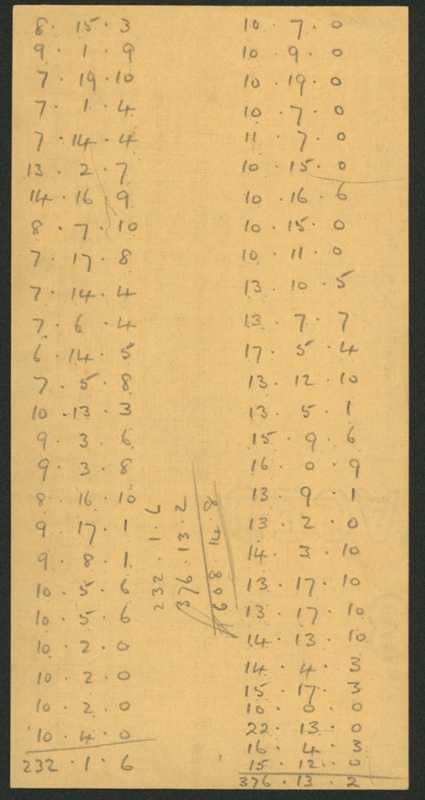 8 . 15 . 3
9 . 1 . 9
7 . 19 . 10
7 . 1 . 4
7 . 14 . 4
13 . 2 . 7
14 . 16 . 9
8 . 7 . 10
7 . 17 . 8
7 . 14 . 4
7 . 6 . 4
6 . 14 . 5
7 . 5 . 8
10 . 13 . 3
9 . 3 . 6
9 . 3 . 8
8 . 16 . 10
9 . 17 . 1
9 . 8 . 1
10 . 5 . 6
10 . 5 . 6
10 . 2 . 0
10 . 2 . 0
10 . 2 . 0
10 . 4 . 0
232 . 1 . 6
232 . 1 . 6
376 . 13 . 2
608 . 14 . 8
10 . 7 . 0
10 . 9 . 0
10 . 19 . 0
10 . 7 . 0
11 . 7 . 0
10 . 15 . 0
10 . 16 . 6
10 . 15 . 0
10 . 11 . 0
13 . 10 . 5
13 . 7 . 7
17 . 5 . 4
13 . 12 . 10
13 . 5 . 1
15 . 9 . 6
16 . 0 . 9
13 . 9 . 1
13 . 2 . 0
14 . 3 . 10
13 . 17 . 10
13 . 17 . 10
14 . 13 . 10
14 . 4 . 3
15 . 17 . 3
10 . 0 . 0
22 . 13 . 0
16 . 4 . 3
15 . 12 . 0
376 . 13 . 2